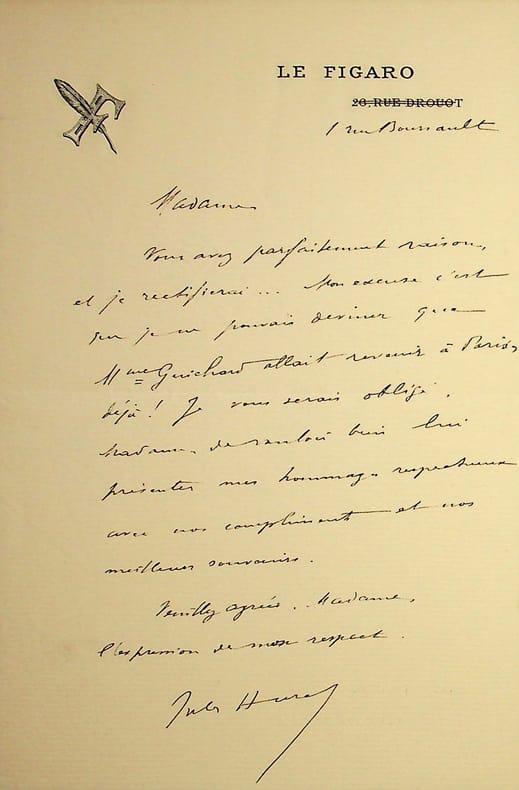 LE FIGARO
26, RUE DROUOT
1 rue Boursault
Madame
Vous avez parfaitement raison,
et je rectifierai... Mon excuse c'est
que je ne pouvais deviner que
Mme Guichard allait revenir à Paris,
déjà ! Je vous serais obligé,
Madame, de vouloir bien lui
présenter mes hommages respectueux
avec nos compliments et nos
meilleurs souvenirs.
Veuillez agréer, Madame,
l'expression de mon respect.
Jules Huret